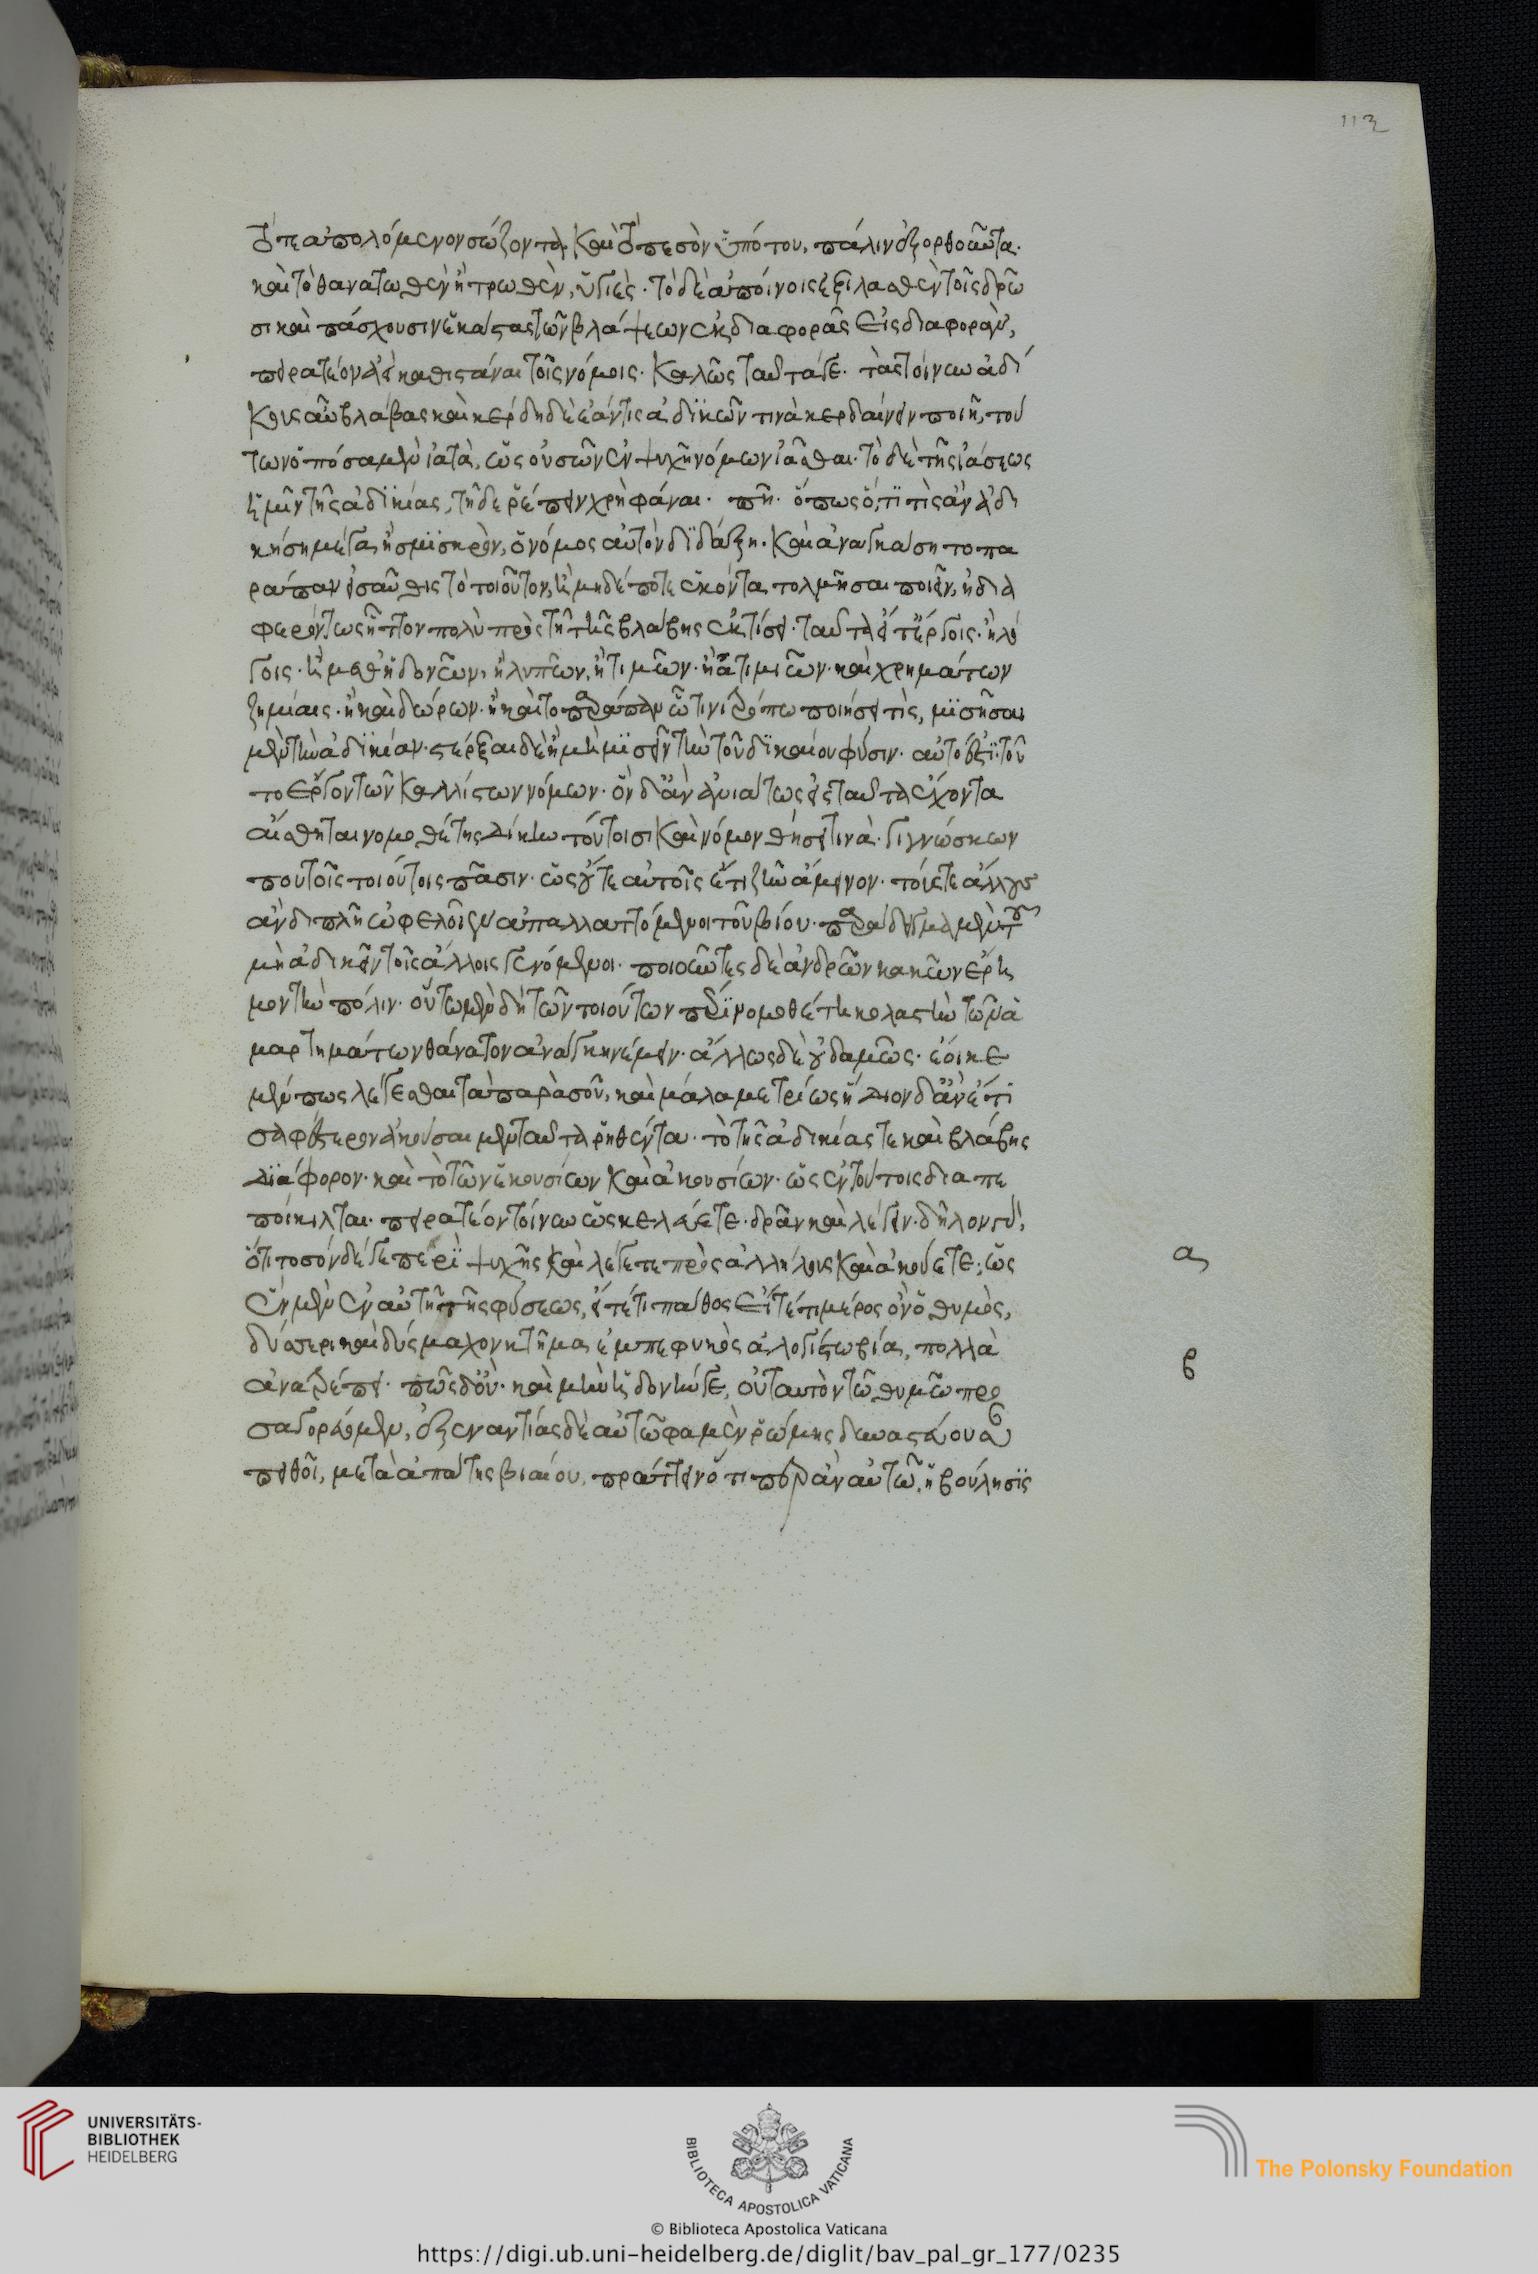 τό τε ἀπολόμενον σώζοντα. καὶ τὸ πεσὸν ὑπό του, πάλιν ἐξορθοῦντα.
καὶ τὸ θανατωθὲν ἢ τρωθὲν, ὑγιές. τὸ δὲ ἀποίνοις ἐξιλασθὲν τοῖς δρῶ
σι καὶ πάσχουσιν ἑκάστας τῶν βλάψεων ἐκ διαφορᾶς εἰς διαφορὰν,
πειρατέον ἀεὶ καθιστάναι τοῖς νόμοις. καλῶς ταῦτά γε. τὰς τοίνυν ἀδί
κους αὖ βλάβας καὶ κέρδη δὲ ἐάν τις ἀδϊκῶν τινὰ κερδαίνειν ποιῇ, τού
των ὁπόσα μὲν ἰατὰ, ὡς οὐσῶν ἐν ψυχῇ νόμων ἰᾶσθαι. τὸ δὲ τῆς ἰάσεως
ἡμῖν τῆς ἀδϊκίας, τῇδε ῥέπειν χρὴ φάναι. πῆ. ὅπως ὅ,τϊ τὶς ἂν ἀδι
κήσῃ μέγα ἢ σμϊκρὸν, ὁ νόμος αὐτὸν δϊδάξῃ. καὶ ἀναγκάσῃ το πα
ράπαν εἰσαῦθις τὸ τοιοῦτον, ἢ μηδέποτε ἑκόντα τολμῆσαι ποιεῖν, ἢ δια
φερόντως ἧττον πολὺ πρὸς τῇ τῆς βλάβης ἐκτίσει. ταῦτα εἴτ' ἔργοις. ἢ λό
γοις. ἢ μεθ' ἡδονῶν, ἢ λυπῶν, ἢ τιμῶν. ἢ ἀτιμιῶν. καὶ χρημάτων
ζημίαις. ἢ καὶ δώρων. ἢ καὶ το παράπαν ᾧτινι τρόπω ποιήσει τὶς, μϊσῆσαι
μὲν τὴν ἀδϊκίαν. στέρξαι δὲ ἢ μὴ μϊσεῖν τὴν τοῦ δϊκαίου φύσιν. αὐτό ἐστϊ τοῦ
το ἔργον τῶν καλλίστων νόμων. ὃν δ' ἂν ἀνιάτως εἰς ταῦτα ἔχοντα
αἴσθηται νομοθέτης δίκην τούτοισι καὶ νόμον θήσει τινὰ. γιγνώσκων
που τοῖς τοιούτοις πᾶσιν. ὡς οὔτε αὐτοῖς ἔτι ζῆν ἄμεινον. τούς τε ἄλλους
ἂν διπλῆ ὠφελοῖεν ἀπαλλαττόμενοι τοῦ βίου. παράδειγμα μὲν τοῦ
μὴ ἀδικεῖν τοῖς ἄλλοις γενόμενοι. ποιοῦντες δὲ ἀνδρῶν κακῶν ἔρη
μον τὴν πόλιν. οὕτω μὲν δὴ τῶν τοιούτων πέρϊ νομοθέτη κολαστὴν τῶν ἁ
μαρτημάτων θάνατον ἀνάγκη νέμειν. ἄλλως δὲ οὐδαμῶς. ἔοικε
μέν πως λέγεσθαι τὰ παρὰ σοῦ, καὶ μάλα μετρίως ἥδιον δ' ἂν ἔτϊ
σαφέστερον ἀκούσαιμεν ταῦτα ῥηθέντα. τὸ τῆς ἀδικίας τε καὶ βλάβης
διάφορον. καὶ τὸ τῶν ἑκουσίων καὶ ἀκουσίων. ὡς ἐν τούτοις δια πε
ποίκιλται. πειρατέον τοίνυν ὡς κελεύετε. δρᾶν καὶ λέγειν. δῆλον γὰρ,
ὅτι τοσόνδε γε περὶ ψυχῆς καὶ λέγετε πρὸς ἀλλήλους καὶ ἀκούετε, ὡς
ἓν μὲν ἐν αὐτῆ τῆς φύσεως, εἴτέ τι πάθος εἴτέ τι μέρος ὂν ὁ θυμὸς,
δύσερι καὶ δύσμαχον κτῆμα ἐμπεφυκὸς ἀλογίστω βία, πολλὰ
ἀνατρέπει. πῶς δ' οὔ. καὶ μὴν ἡδονήν γε, οὐ ταυτὸν τῶ θυμῶ προ
σαγορεύομεν, ἐξεναντίας δὲ αὐτῶ φαμὲν ῥώμης δυναστεύουσα
πειθοῖ, μετὰ ἀπάτης βιαίου, πράττειν ὅτι περ ἂν αὐτῶ, ἡ βούλησϊς
α
β
113
UNIVERSITÄTS-
BIBLIOTHEK
HEIDELBERG
BIBLIOTECA APOSTOLICA VATICANA
The Polonsky Foundation
© Biblioteca Apostolica Vaticana
https://digi.ub.uni-heidelberg.de/diglit/bav_pal_gr_177/0235